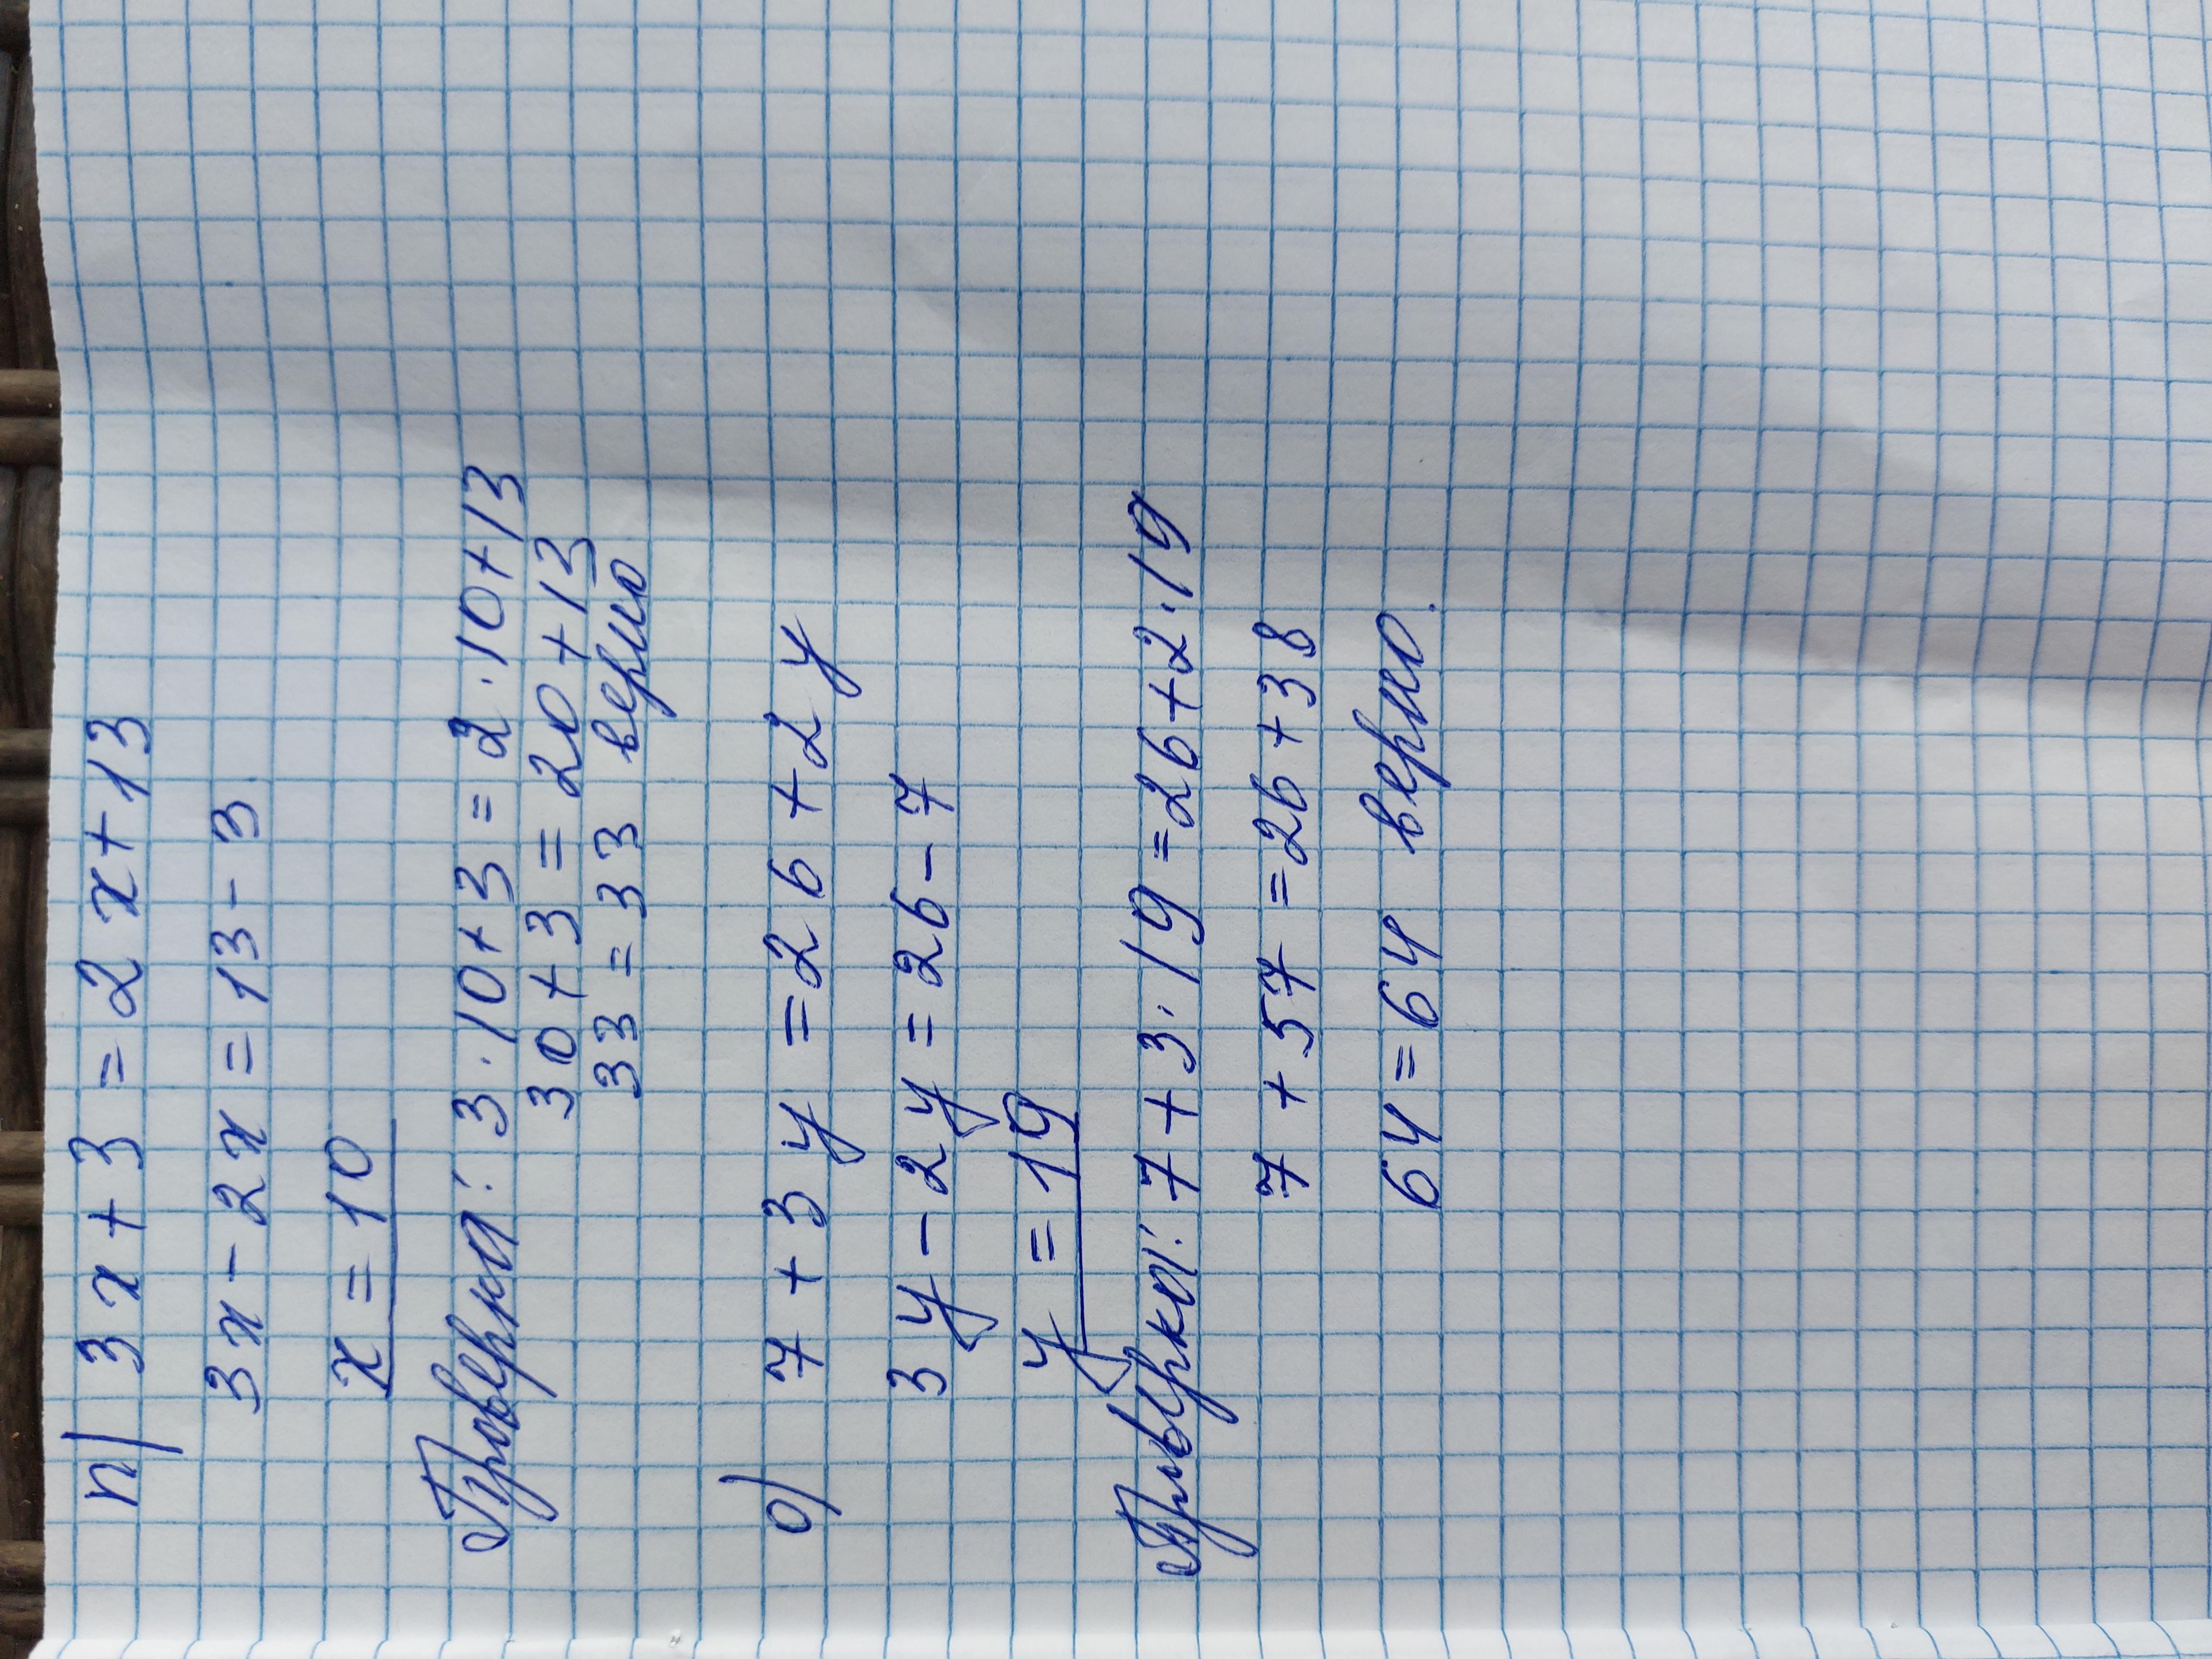 п) 3x + 3 = 2x + 13
3x - 2x = 13 - 3
x = 10
Проверка: 3 · 10 + 3 = 2 · 10 + 13
30 + 3 = 20 + 13
33 = 33 верно
о) 7 + 3y = 26 + 2y
3y - 2y = 26 - 7
y = 19
Проверка: 7 + 3 · 19 = 26 + 2 · 19
7 + 57 = 26 + 38
64 = 64 верно.